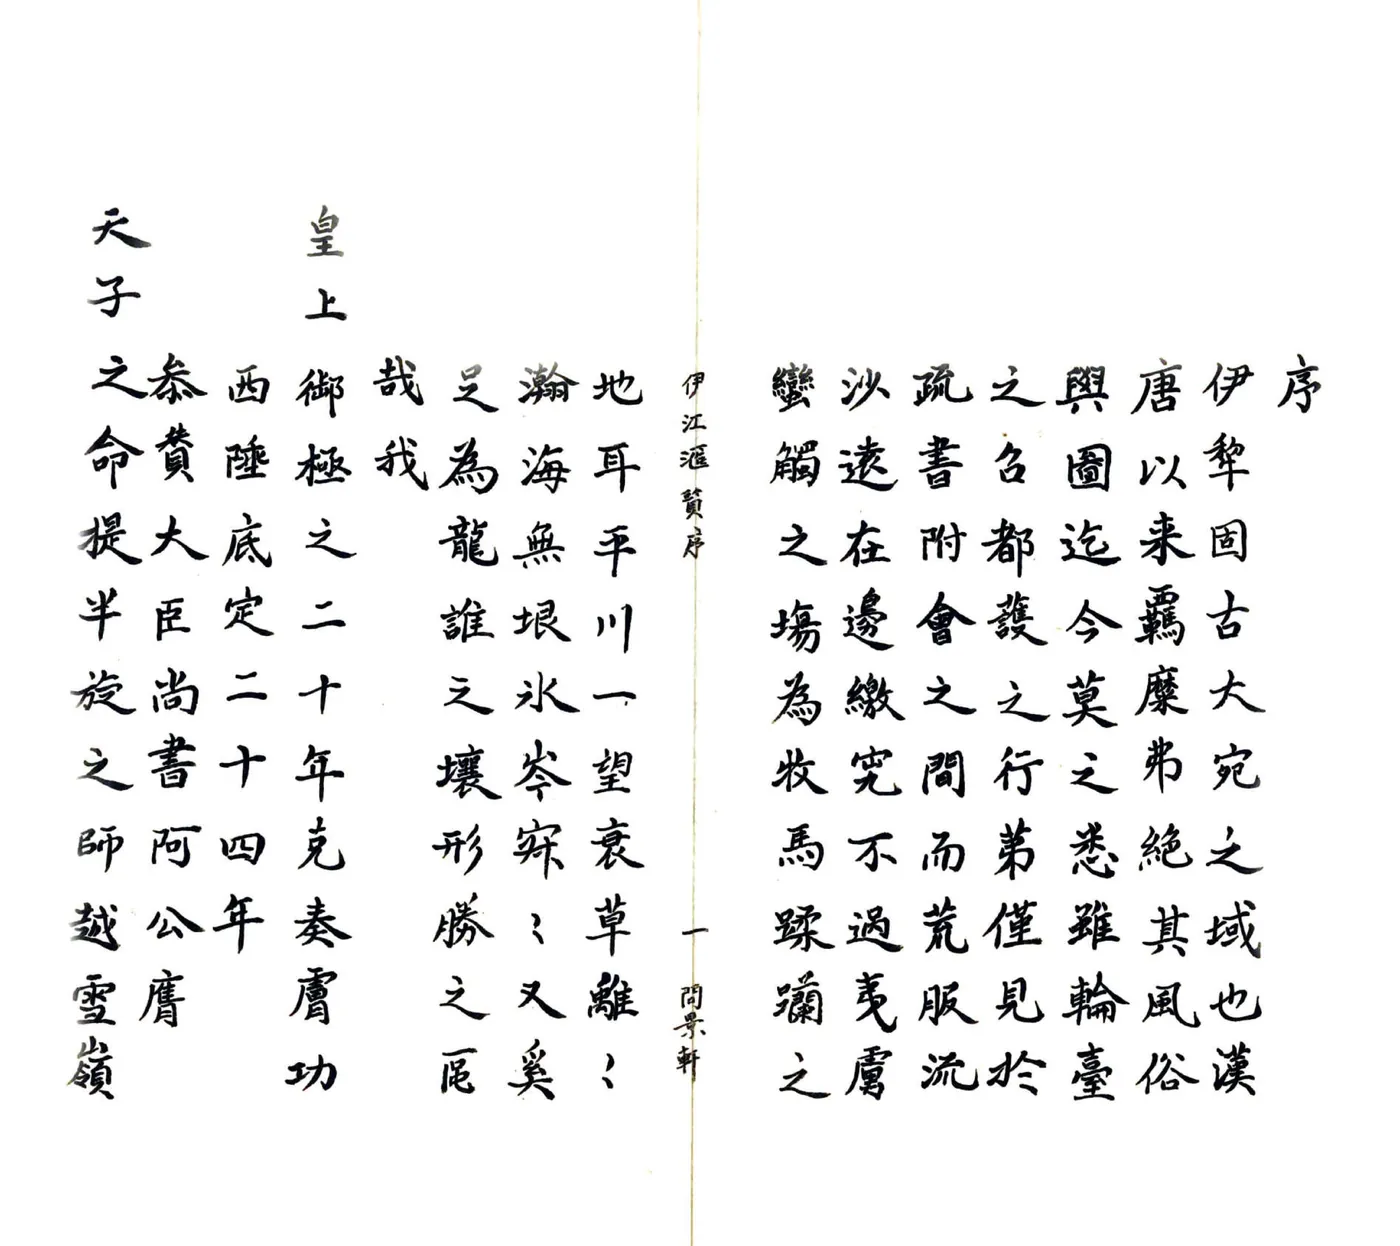 序
伊犂固古大宛之域也漢
唐以来羈縻弗絶其風俗
輿圖迄今莫之悉雖輪臺
之名都護之行苐僅見於
疏書附會之間而荒服流
沙遠在邊繳究不過夷虜
蠻觸之場為牧馬蹂躪之
伊江滙覽序
一
問景軒
地耳平川一望衰草離〻
瀚海無垠氷岑寂〻又奚
足為龍誰之壤形勝之區
哉我
皇上御極之二十年克奏膚功
西陲底定二十四年
叅贊大臣尚書阿公膺
天子之命提半旋之師越雪嶺